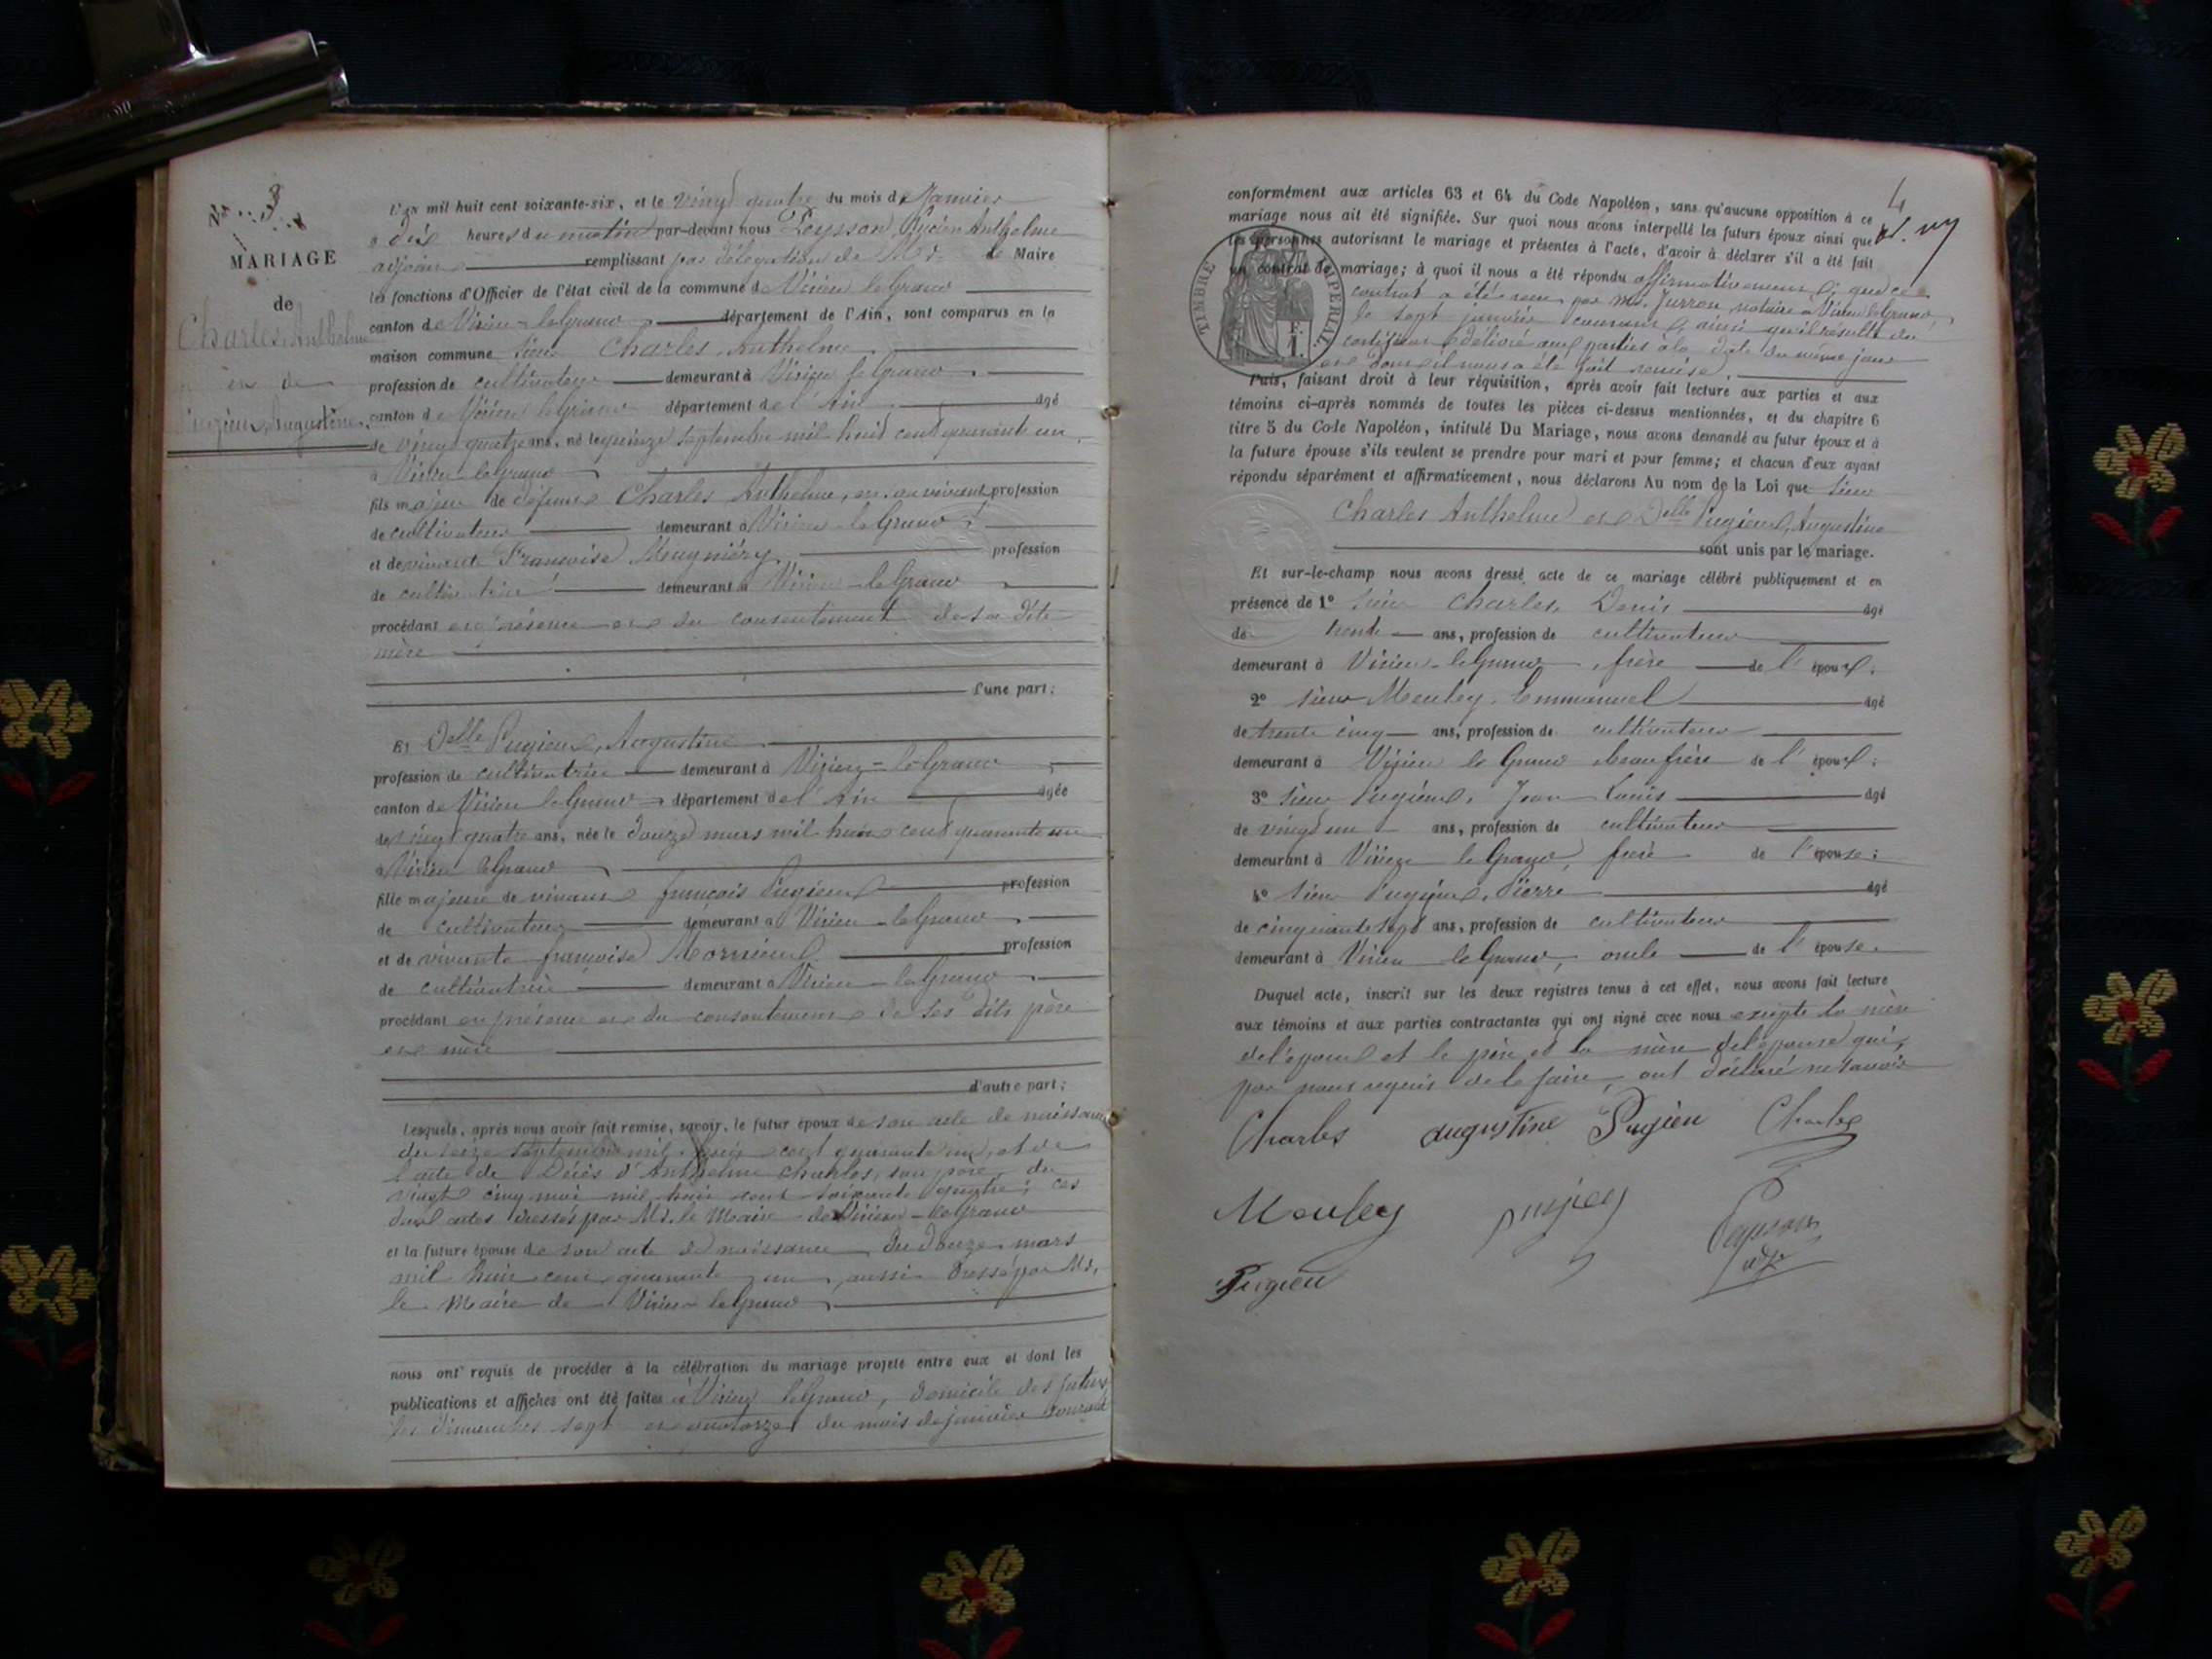 N° 3
MARIAGE
de
Charles, Anthelme
et de
Pugieux, Augustine
L'an mil huit cent soixante-six, et le vingt quatre du mois de Janvier
à dix heures du matin par-devant nous Peysson, Anthelme
adjoint remplissant par délégation de Mr. le Maire
les fonctions d'Officier de l'état civil de la commune de Virieu le Grand
canton de Virieu-le-Grand département de l'Ain, sont comparus en la
maison commune sieur Charles, Anthelme
profession de cultivateur demeurant à Virieu le Grand
canton de Virieu le Grand département de l'Ain âgé
de vingt quatre ans, né le quinze septembre mil huit cent quarante un
à Virieu-le-Grand
fils majeur de défunt Charles Anthelme, en son vivant profession
de cultivateur demeurant à Virieu-le-Grand
et de vivante Françoise Mugniéry profession
de cultivatrice demeurant à Virieu-le-Grand
procédant en présence et du consentement de sa dite
mère
d'une part;
Et Delle Pugieux, Augustine
profession de cultivatrice demeurant à Virieu-le-Grand
canton de Virieu le Grand département de l'Ain âgée
de vingt quatre ans, née le douze mars mil huit cent quarante un
à Virieu le Grand
fille majeure de vivant françois Pugieux profession
de cultivateur demeurant à Virieu-le-Grand
et de vivante françoise Mornieux profession
de cultivatrice demeurant à Virieu-le-Grand
procédant en présence et du consentement de ses dits père
et mère
d'autre part;
Lesquels, après nous avoir fait remise, savoir, le futur époux de son acte de naissance
du seize septembre mil huit cent quarante un, et de
l'acte de Décès d'Anthelme Charles, son père, du
vingt cinq mai mil huit cent soixante quatre; ces
deux actes dressés par Mr. le Maire de Virieu-le-Grand
et la future épouse de son acte de naissance du douze mars
mil huit cent quarante un, aussi dressé par Mr.
le Maire de Virieu-le Grand
nous ont requis de procéder à la célébration du mariage projeté entre eux et dont les
publications et affiches ont été faites à Virieu le Grand, domicile des futurs
les dimanches sept et quatorze du mois de janvier courant
4
conformément aux articles 63 et 64 du Code Napoléon, sans qu'aucune opposition à ce
mariage nous ait été signifiée. Sur quoi nous avons interpellé les futurs époux ainsi que
les personnes autorisant le mariage et présentes à l'acte, d'avoir à déclarer s'il a été fait
un contrat de mariage; à quoi il nous a été répondu affirmativement; que ce
contrat a été reçu par Me. Jurron, notaire à Virieu le Grand,
le sept janvier courant, ainsi qu'il résulte du
certificat délivré aux parties à la date du même jour
et dont il nous a été fait remise.
TIMBRE IMPERIAL
Puis, faisant droit à leur réquisition, après avoir fait lecture aux parties et aux
témoins ci-après nommés de toutes les pièces ci-dessus mentionnées, et du chapitre 6
titre 5 du Code Napoléon, intitulé Du Mariage, nous avons demandé au futur époux et à
la future épouse s'ils veulent se prendre pour mari et pour femme; et chacun d'eux ayant
répondu séparément et affirmativement, nous déclarons Au nom de la Loi que sieur
Charles Anthelme et Delle Pugieux, Augustine
sont unis par le mariage.
Et sur-le-champ nous avons dressé acte de ce mariage célébré publiquement et en
présence de 1° sieur Charles, Denis âgé
de trente ans, profession de cultivateur
demeurant à Virieu-le Grand, frère de l'époux;
2° sieur Meuley, Emmanuel âgé
de trente cinq ans, profession de cultivateur
demeurant à Virieu le Grand beau frère de l'époux;
3° sieur Pugieux, Jean Louis âgé
de vingt un ans, profession de cultivateur
demeurant à Virieu le Grand, frère de l'épouse;
4° sieur Pugieux, Pierre âgé
de cinquante sept ans, profession de cultivateur
demeurant à Virieu le Grand, oncle de l'épouse.
Duquel acte, inscrit sur les deux registres tenus à cet effet, nous avons fait lecture
aux témoins et aux parties contractantes qui ont signé avec nous excepté la mère
de l'époux et le père et la mère de l'épouse qui,
par nous requis de le faire, ont déclaré ne savoir
Charles augustine Pugieu Charles
Meuley pugieu Peysson
adjt
Pugieu